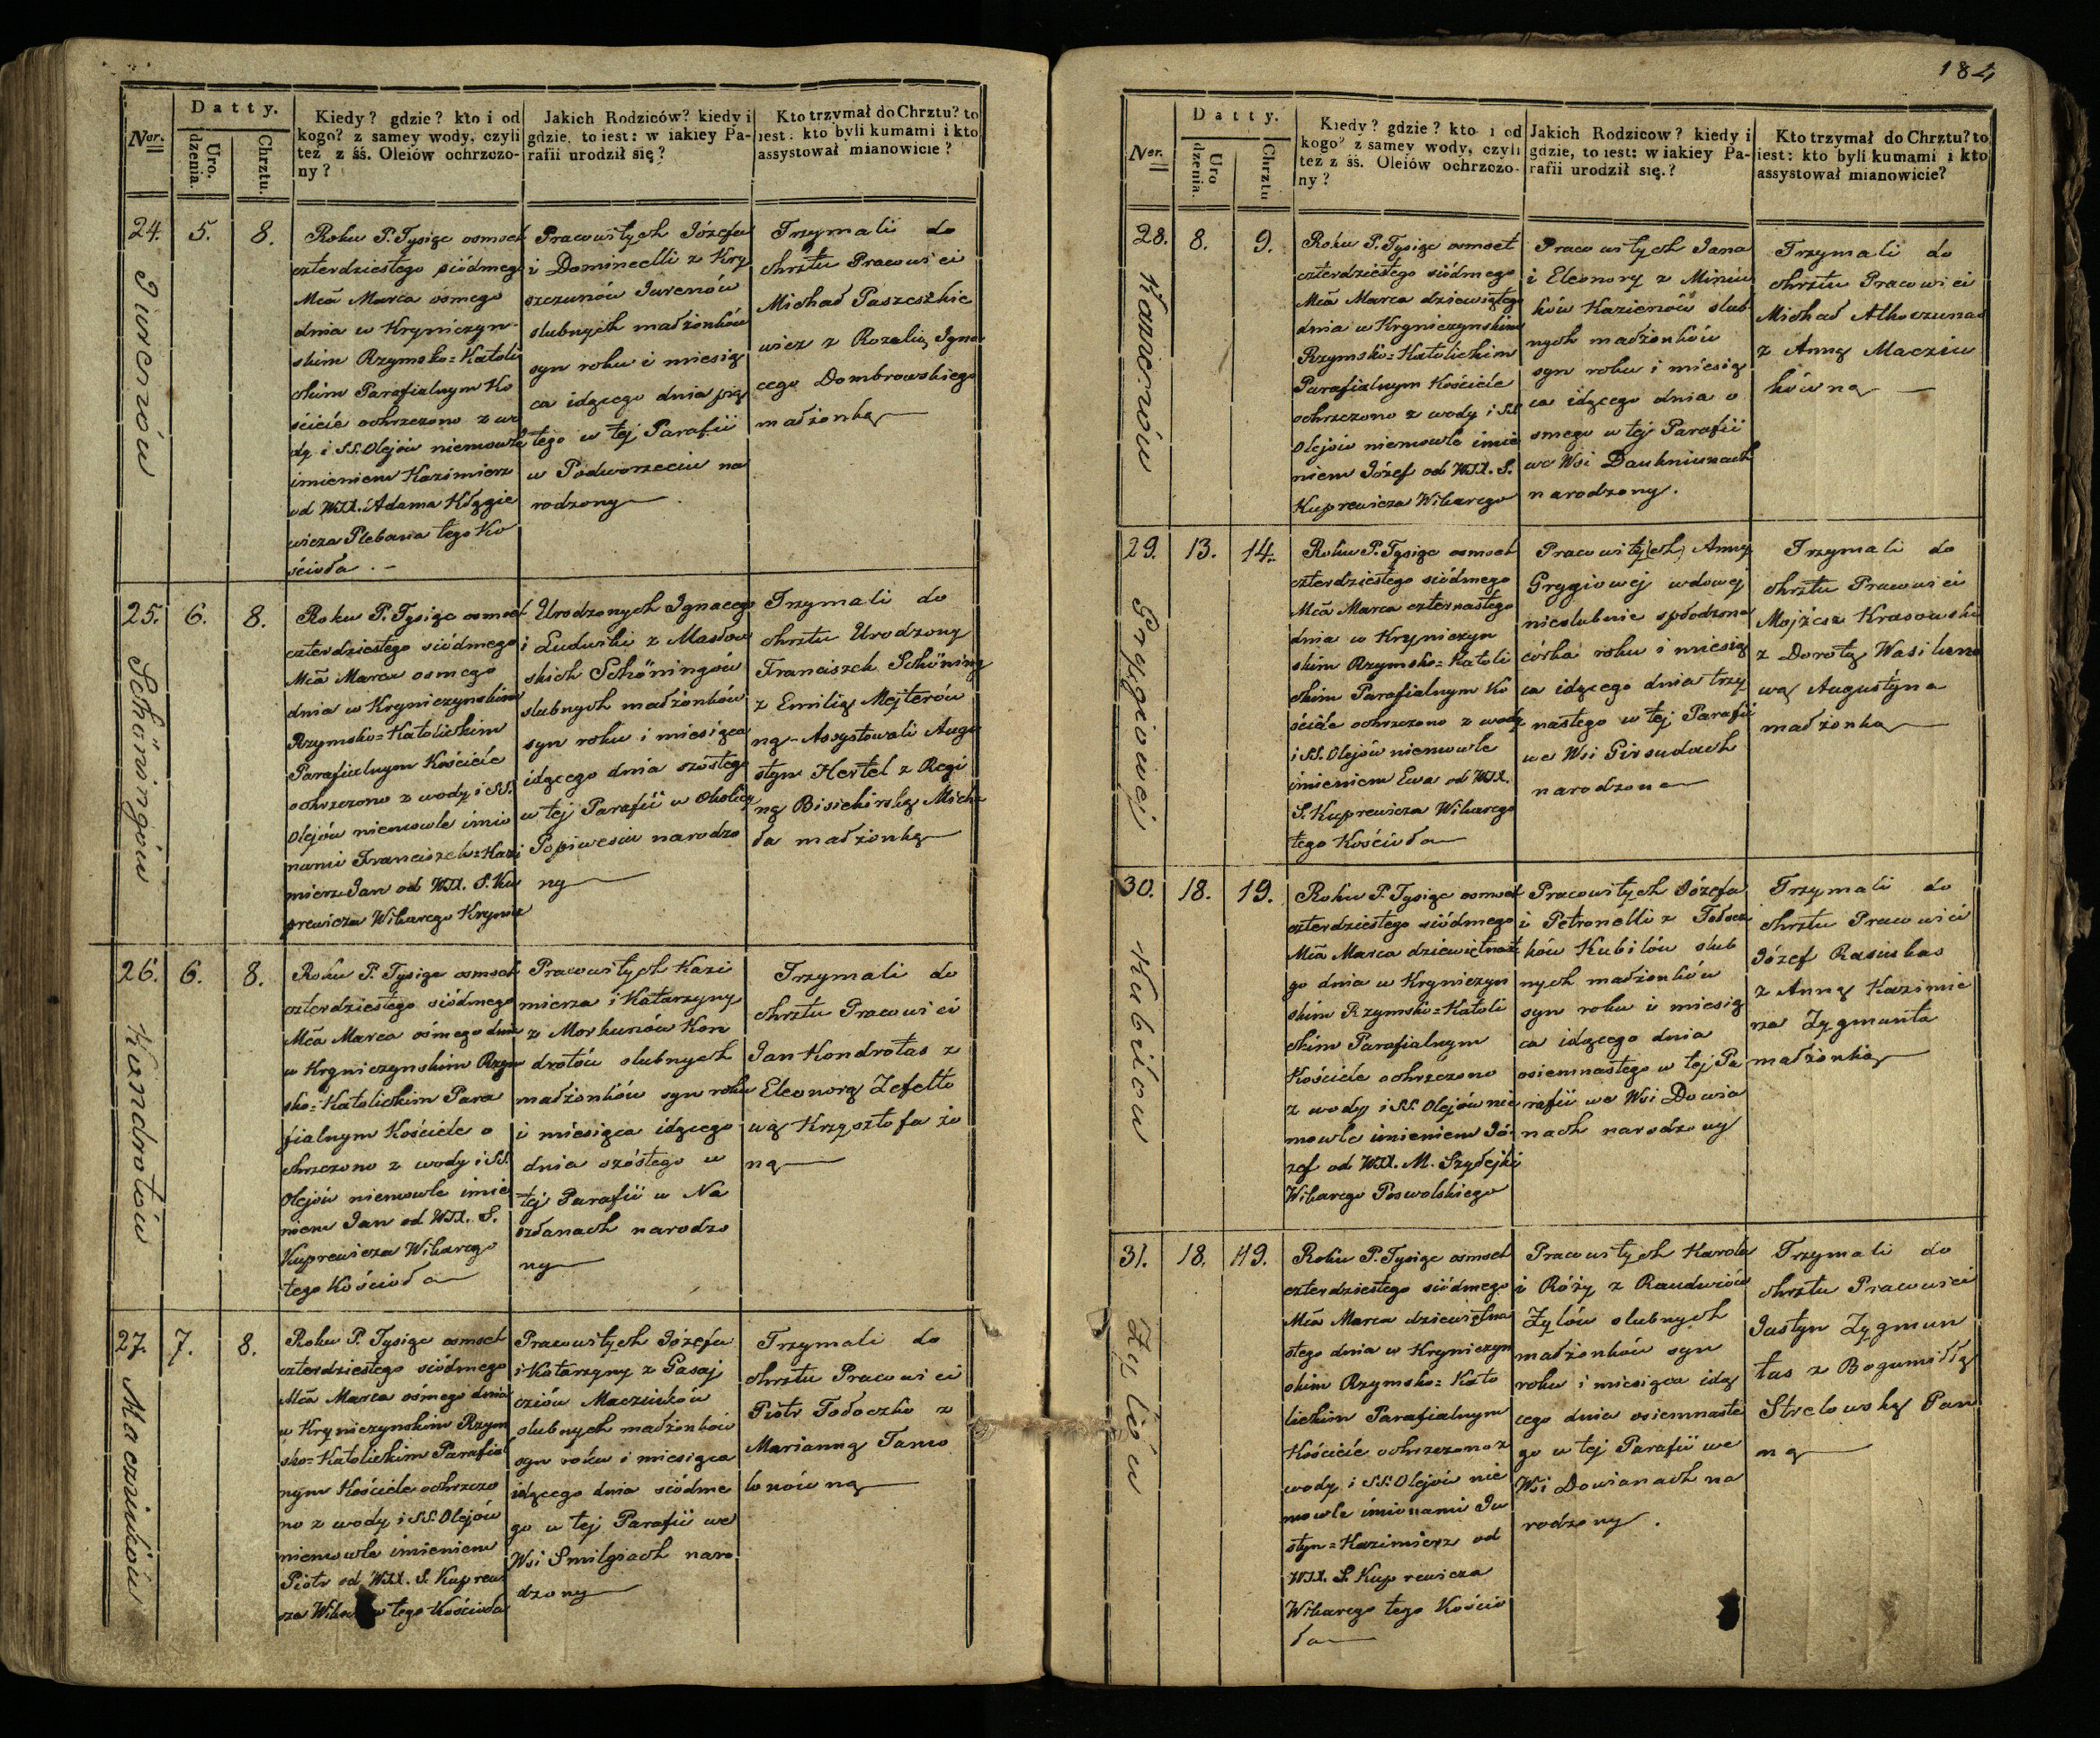 Datty.
Ner.
Uro.
dzenia.
Chrztu.
Kiedy? gdzie? kto i od
kogo? z samey wody, czyli
też z śś. Oleiów ochrzczo-
ny?
Jakich Rodziców? kiedy i
gdzie, to iest: w iakiey Pa-
rafii urodził się?
Kto trzymał do Chrztu? to
iest: kto byli kumami i kto
assystował mianowicie?
24.
5.
8.
Jurenów
Roku P. Tysiąc osmset
czterdziestego siódmego
Mcã Marca osmego
dnia w Kryniczyn-
skim Rzymsko=Katoli
ckim Parafialnym Ko
ściele ochrzczono z wo
dy i SS. Olejów niemowle
imieniem Kazimierz
od WJX. Adama Kłągie
wicza Plebana tego Ko
ścioła . -
Pracowitych Józefa
i Dominelli z Kry
szczunów Jurenów
slubnych małżonków
syn roku i miesią
ca idącego dnia pią
tego w tej Parafii
w Podworzeciu na
rodzony
Trzymali do
chrztu Pracowici
Michał Paszeszkie
wicz z Rozalią Igna
cego Dombrowskiego
małżonką
25.
6.
8.
Schöningów
Roku P. Tysiąc osmset
czterdziestego siódmego
Mcã Marca osmego
dnia w Krynoczynskim
Rzymsko=Katolickim
Parafialnym Kościele
ochrzczono z wody i SS.
Olejów niemowle imio
nami Franciszek=Kazi
mierz Jan od WJX. S. Ku
prewicza Wikarego Krynicz
Urodzonych Ignacego
i Ludwiki z Masłow
skich Schöningów
slubnych małżonków
syn roku i miesiąca
idącego dnia szóstego
w tej Parafii w Okolicy
Popiwesiu narodzo
ny
Trzymali do
chrztu Urodzony
Franciszek Schöning
z Emilią Mejterów
ną - Assystowali Augu
styn Hertel z Regi
ną Bisiekirską Micha
ła małżonką
26.
6.
8.
Kondrotów
Roku P. Tysiąc osmset
czterdziestego siódmego
Mcã Marca osmego dnia
w Krynoczynskim Rzym
sko=Katolickim Para
fialnym Kościele o
chrzczono z wody i SS.
Olejów niemowle imie
niem Jan od WJX. S.
Kuprewicza Wikarego
tego Kościoła
Pracowitych Kazi
mierza i Katarzyny
z Morkunów Kon
drotów slubnych
małżonków syn roku
i miesiąca idącego
dnia szóstego w
tej Parafii w Na
szłanach narodzo
ny
Trzymali do
chrztu Pracowici
Jan Kondrotas z
Eleonorą Zefelto
wą Krzysztofa żo
ną
27.
7.
8.
Maczuików
Roku P. Tysiąc osmset
czterdziestego siódmego
Mcã Marca osmego dnia
w Kryniczynskim Rzym
sko=Katolickim Parafial
nym Kościele ochrzczo
no z wody i SS. Olejów
niemowle imieniem
Piotr od WJX. S. Kuprew
cza tego Kościoła
Pracowitych Józefa
i Katarzyny z Gasaj
cziów Maczuików
slubnych małżonków
syn roku i miesiąca
idącego dnia siódme
go w tej Parafii we
Wsi Smilgiach naro
dzony
Trzymali do
chrztu Pracowici
Piotr Tołoczko z
Marianną Tamo
lonówną
184
Datty.
Ner.
Uro
dzenia.
Chrztu
Kiedy? gdzie? kto i od
kogo? z samey wody, czyli
też z śś. Oleiów ochrzczo-
ny?
Jakich Rodzicow? kiedy i
gdzie, to iest: w iakiey Pa-
rafii urodził się.?
Kto trzymał do Chrztu? to
iest: kto byli kumami i kto
assystował mianowicie?
28.
8.
9.
Kazienów
Roku P. Tysiąc osmset
czterdziestego siódmego
Mcã Marca dziewiątego
dnia w Krynoczynskim
Rzymsko=Katolickim
Parafialnym Kościele
ochrzczono z wody i SS
Olejów niemowle imie
niem Józef od WJX. S.
Kuprewicza Wikarego
Pracowitych Jana
i Eleonory z Miniu
ków Kazienów slub
nych małżonków
syn roku i miesią
ca idącego dnia o
smego w tej Parafii
we Wsi Daukniunach
narodzony.
Trzymali do
chrztu Pracowici
Michał Atkoczunas
z Anną Macziu
kówną
29.
13.
14.
Grygiowej
Roku P. Tysiąc osmset
czterdziestego siódmego
Mcã Marca czternastego
dnia w Kryniczyn
skim Rzymsko=Katoli
ckim Parafialnym Ko
ściele ochrzczono z wody
i SS. Olejów niemowle
imieniem Ewa od WJX.
S. Kuprewicza Wikarego
tego Kościoła
Pracowitej(ch) Anny
Grygiowej wdowej
nieslubnie spłodzona
córka roku i miesią
ca idącego dnia trzy
nastego w tej Parafii
we Wsi Girsudach
narodzona
Trzymali do
chrztu Pracowici
Mojżesz Krasowski
z Dorotą Wasilewo
wą Augustyna
małżonką
30.
18.
19.
Kubilów
Roku P. Tysiąc osmset
czterdziestego siódmego
Mcã Marca dziewiętnaste
go dnia w Kryniczyn
skim Rzymsko=Katoli
ckim Parafialnym
Kościele ochrzczono
z wody i SS. Olejów nie
mowle imieniem Jó-
zef od WJX. M. Szydejki
Wikarego Poswolskiego
Pracowitych Józefa
i Petronelli z Tołocz
ków Kubilów slub
nych małżonków
syn roku i miesią
ca idącego dnia
osiemnastego w tej Pa
rafii we Wsi Dowia
nach narodzony
Trzymali do
chrztu Pracowici
Józef Rasiukas
z Anną Kazimie
rza Zygmunta
małżonką
31.
18.
19.
Zylów
Roku P. Tysiąc osmset
czterdziestego siódmego
Mcã Marca dziewiętna
stego dnia w Kryniczyn
skim Rzymsko=Kato
lickim Parafialnym
Kościele ochrzczono z
wody i SS. Olejów nie
mowle imionami Ju
styn=Kazimierz od
WJX. S. Kuprewicza
Wikarego tego Kościo
ła
Pracowitych Karola
i Róży z Raudwiów
Zylów slubnych
małżonków syn
roku i miesiąca idą
cego dnia osiemnaste
go w tej Parafii we
Wsi Dowianach na
rodzony.
Trzymali do
chrztu Pracowici
Justyn Zygmun
tas z Bogumiłłą
Strelowską Pan
ną